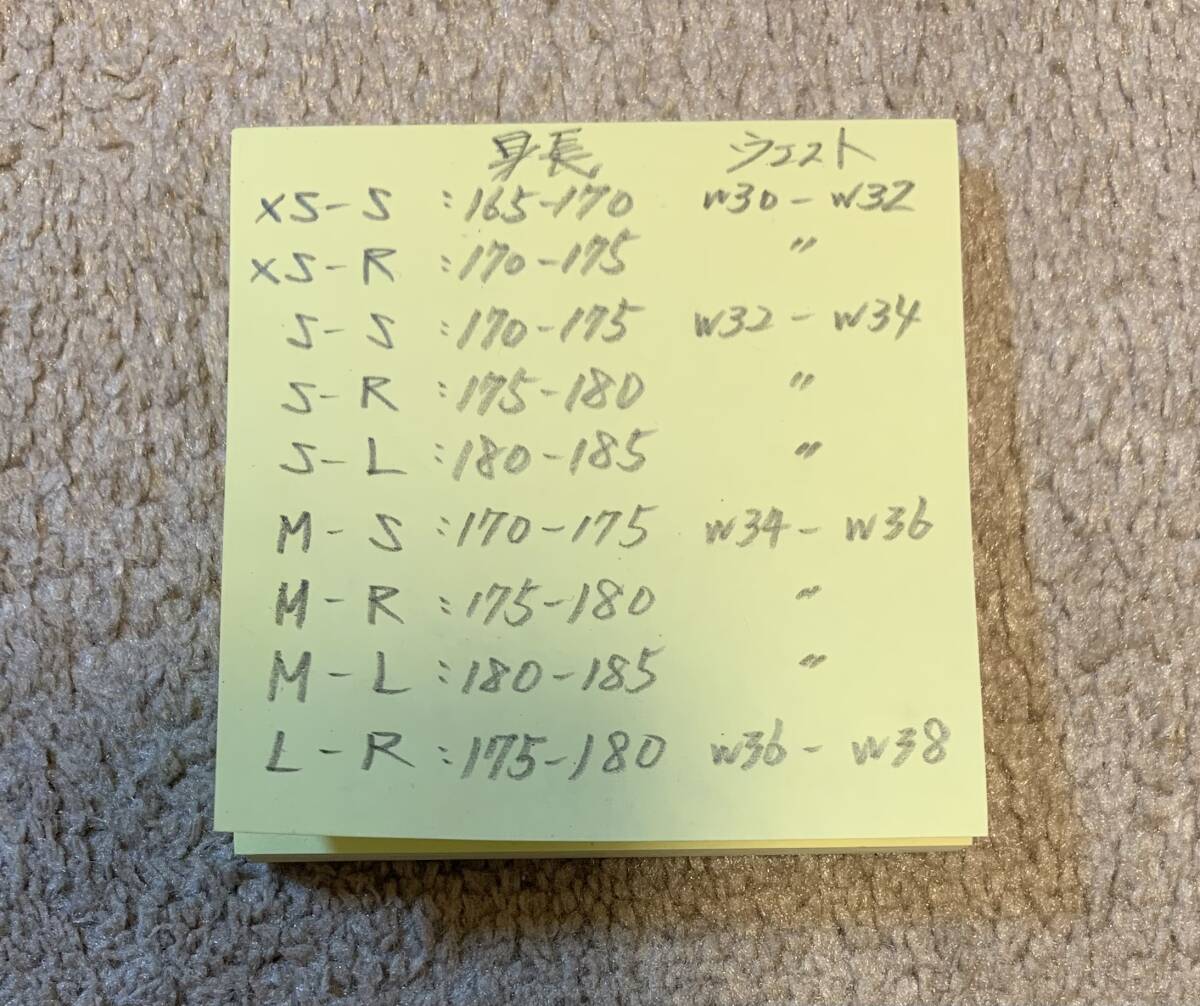 身長 ウェスト
XS-S :165-170 W30-W32
XS-R :170-175 〃
S-S :170-175 W32-W34
S-R :175-180 〃
S-L :180-185 〃
M-S :170-175 W34-W36
M-R :175-180 〃
M-L :180-185 〃
L-R :175-180 W36-W38